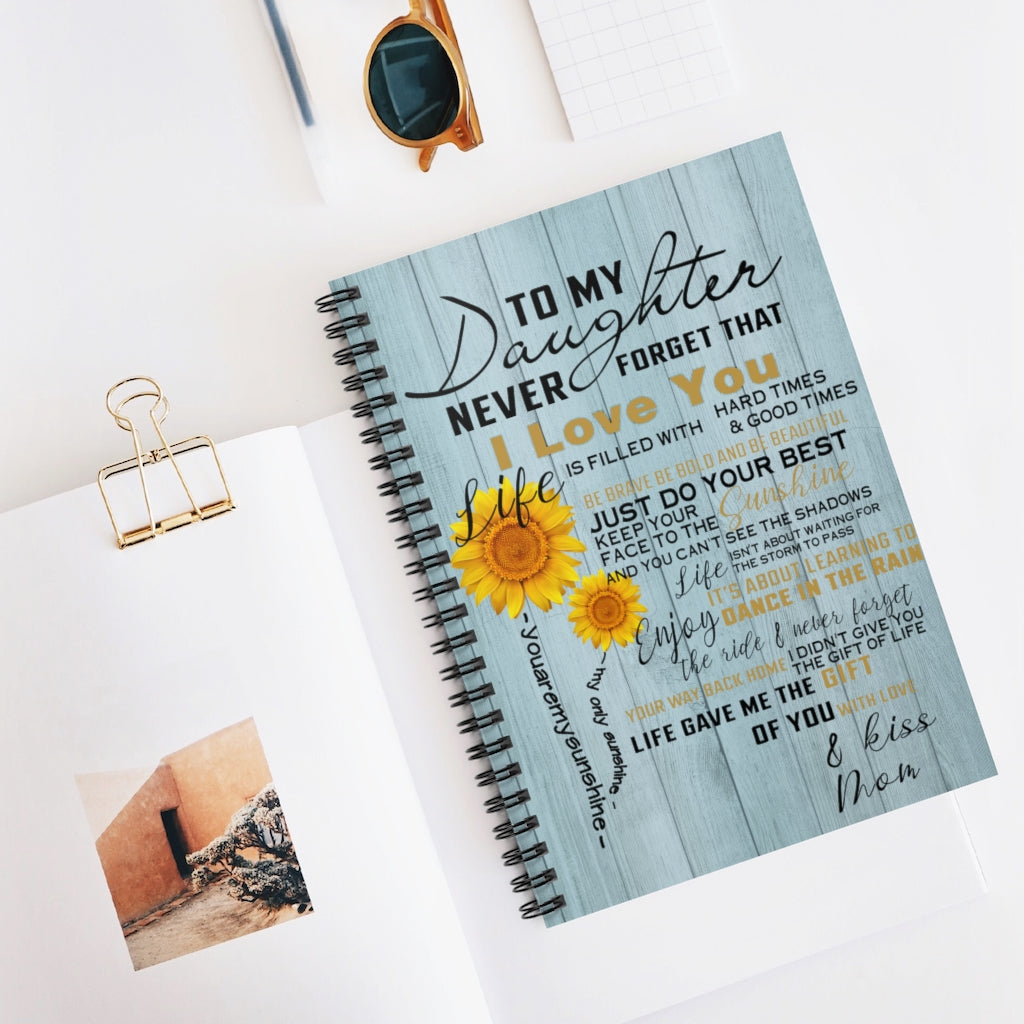 TO MY
Daughter
NEVER FORGET THAT
I Love You
Life IS FILLED WITH HARD TIMES
& GOOD TIMES
BE BRAVE BE BOLD AND BE BEAUTIFUL
JUST DO YOUR BEST
KEEP YOUR
FACE TO THE Sunshine
AND YOU CAN'T SEE THE SHADOWS
Life ISN'T ABOUT WAITING FOR
THE STORM TO PASS
IT'S ABOUT LEARNING TO
DANCE IN THE RAIN
Enjoy the ride & never forget
YOUR WAY BACK HOME I DIDN'T GIVE YOU
THE GIFT OF LIFE
LIFE GAVE ME THE GIFT
OF YOU WITH LOVE
& kiss
Mom
-youaremysunshine-
-my only sunshine-